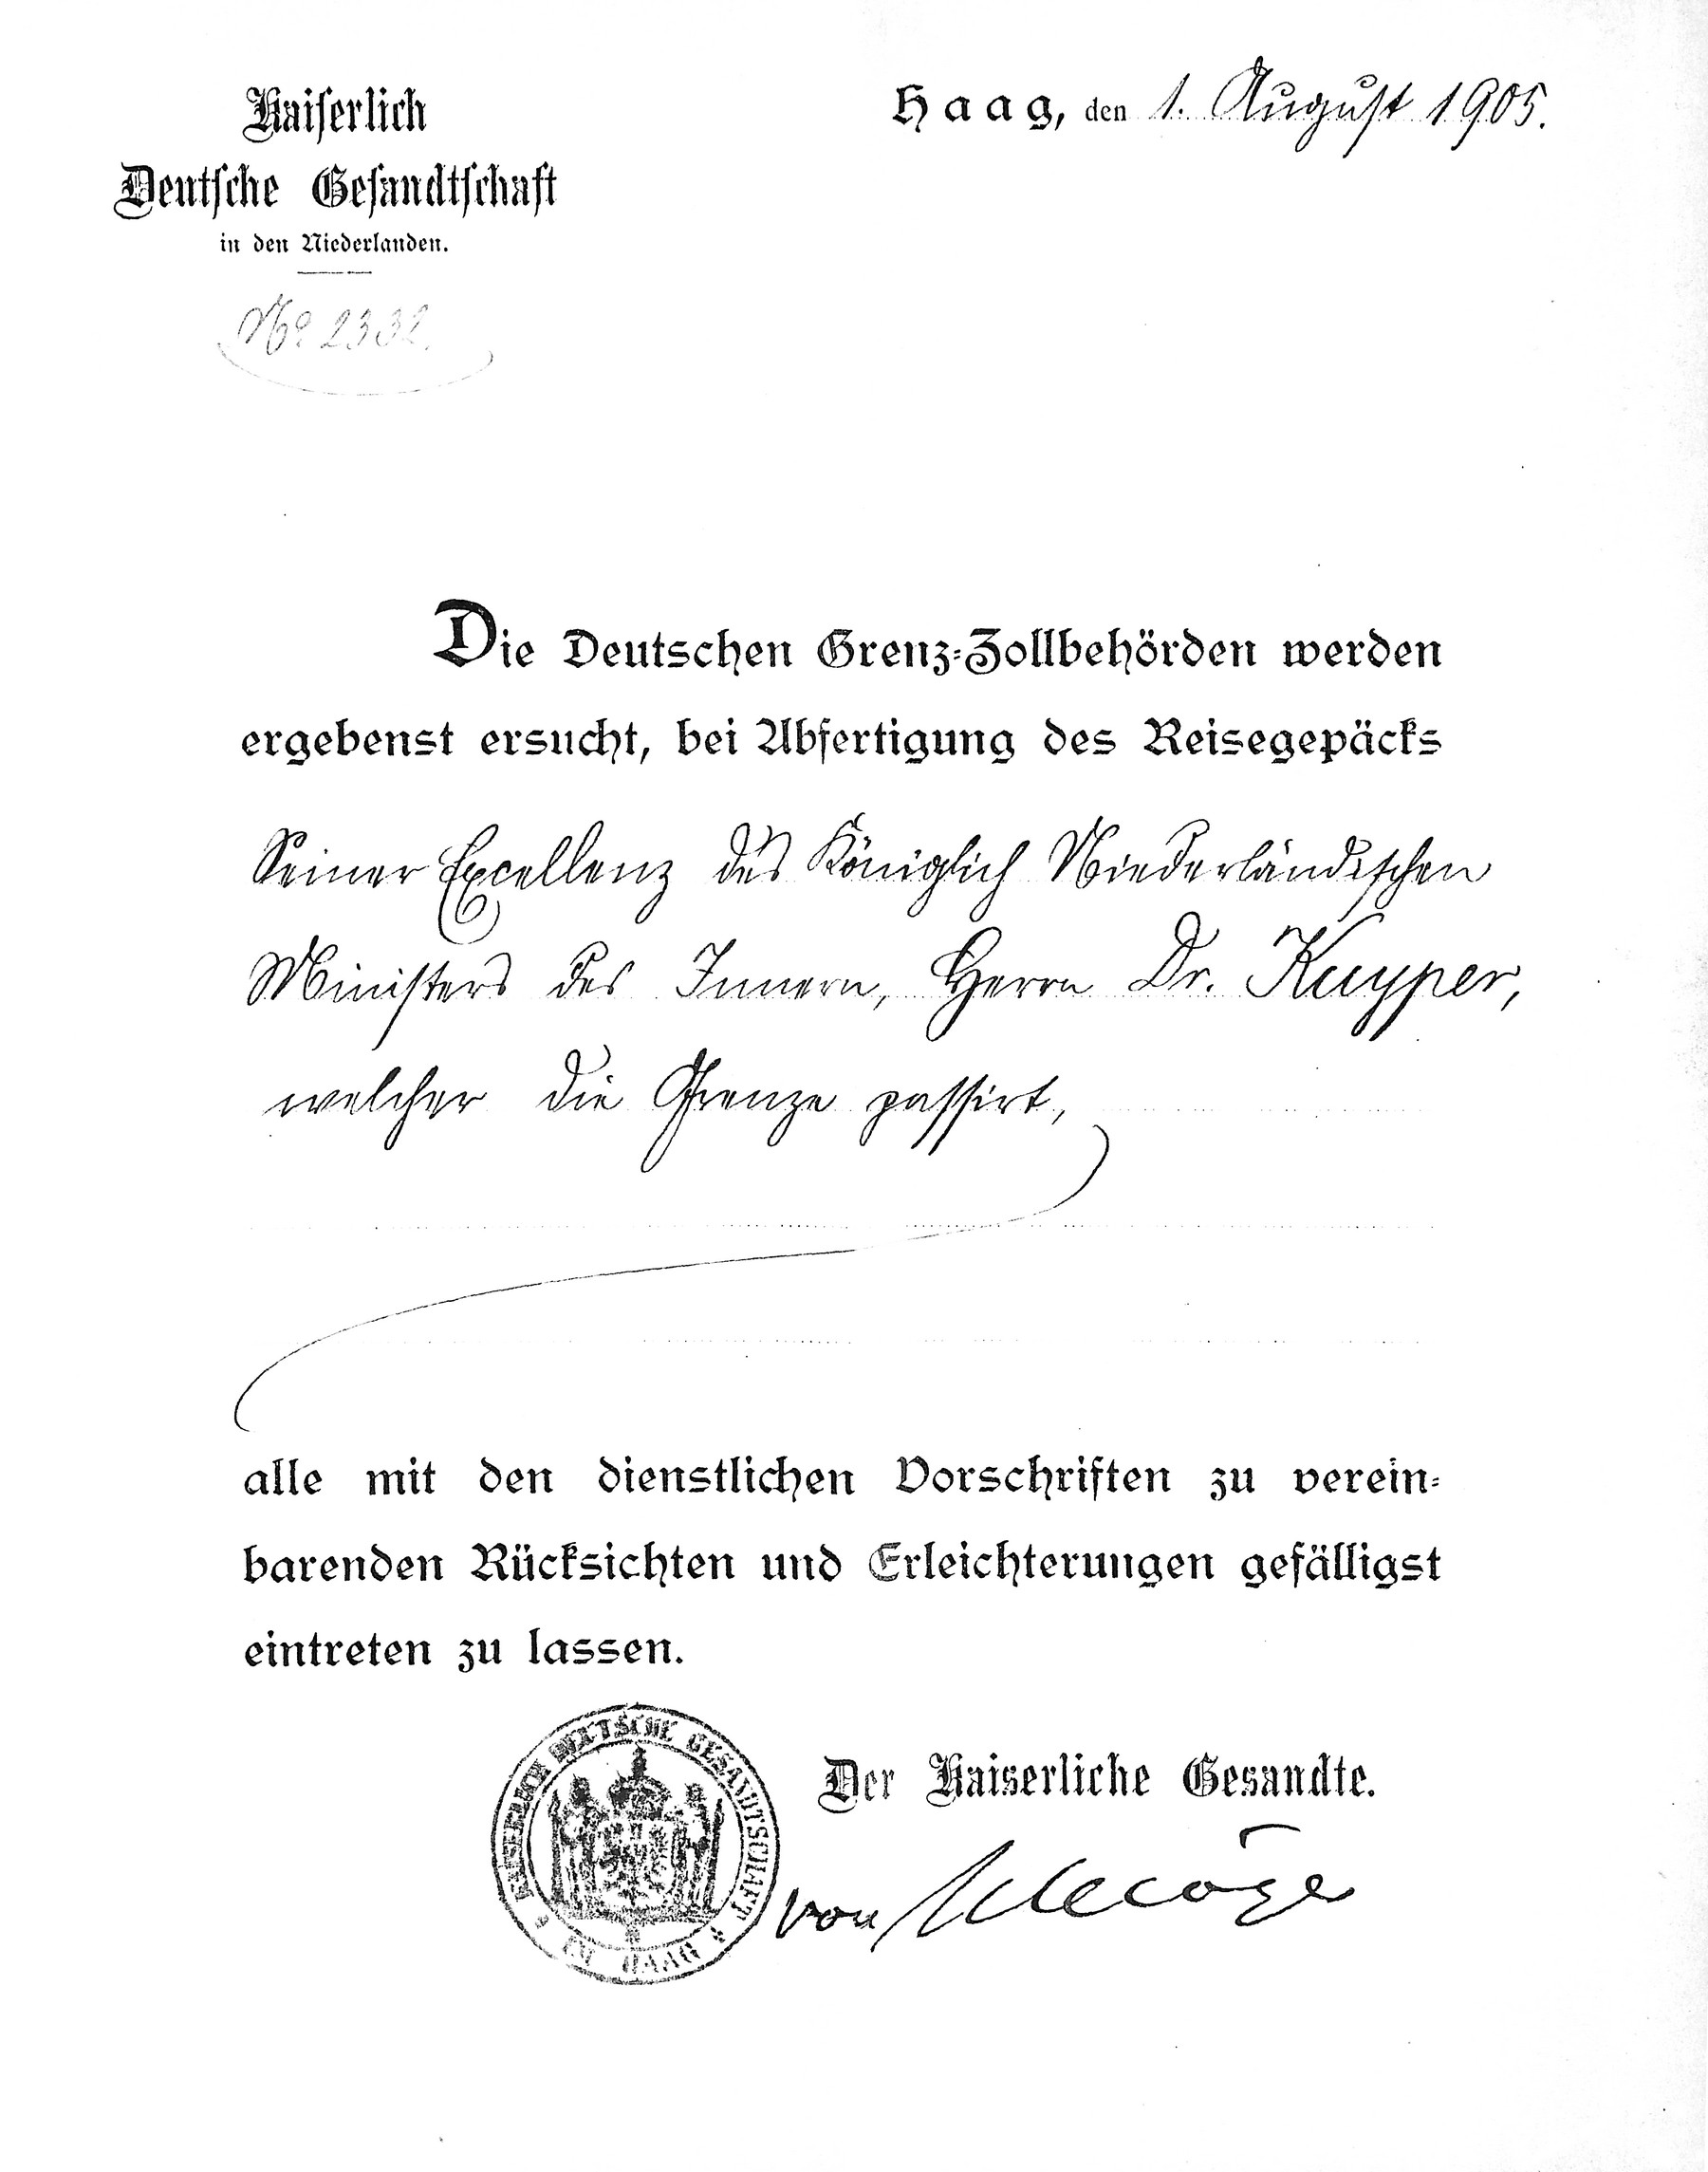 Kaiserlich
Deutsche Gesandtschaft
in den Niederlanden.
No 2332.
Haag, den 1. August 1905.
Die Deutschen Grenz-Zollbehörden werden
ergebenst ersucht, bei Abfertigung des Reisegepäcks
Seiner Excellenz des Königlich Niederländischen
Ministers des Innern, Herrn Dr. Kuyper,
welcher die Grenze passirt,
alle mit den dienstlichen Vorschriften zu verein-
barenden Rücksichten und Erleichterungen gefälligst
eintreten zu lassen.
KAISERLICH DEUTSCHE GESANDTSCHAFT
IM HAAG
Der Kaiserliche Gesandte.
von